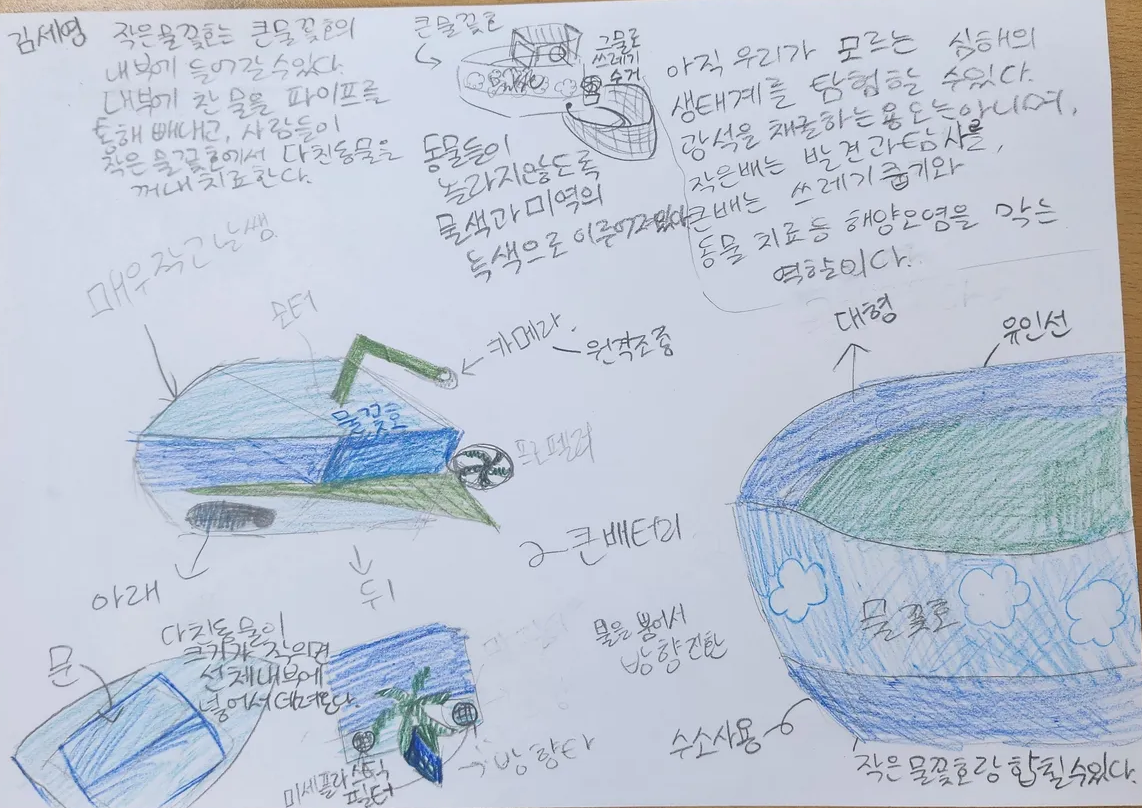 김세영
작은물꽃호는 큰물꽃호의
내부에 들어갈 수 있다.
내부에 찬 물을 파이프를
통해 빼내고, 사람들이
작은 물꽃호에서 다친동물을
꺼내 치료한다.
큰물꽃호
그물로
쓰레기
수거
동물들이
놀라지않도록
물색과 미역의
녹색으로 이루어져있다
아직 우리가 모르는 심해의
생태계를 탐험할 수있다.
광석을 채굴하는 용도는아니며,
작은배는 발견과 탐사를,
큰배는 쓰레기 줍기와
동물 치료등 해양오염을 막는
역할이다.
매우작고날쌤.
모터
카메라
원격조종
물꽃호
프로펠러
아래
뒤
큰배터리
대형
유인선
물꽃호
문
다친동물이
크기가 작으면
선체내부에
넣어서 데려온다.
물을 뿜어서
방향전환
미세플라스틱
필터
방향타
수소사용
작은 물꽃호랑 합칠수있다.